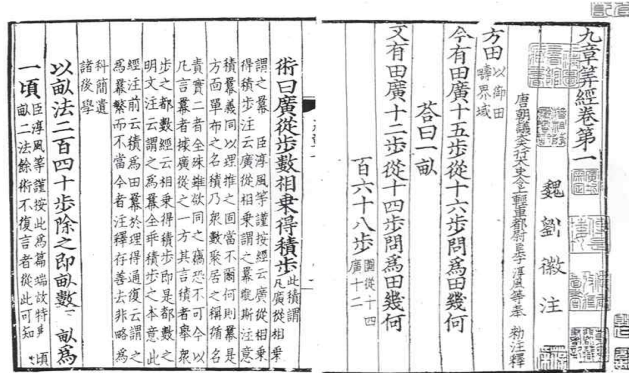 九章筭經卷第一
魏劉徽注
唐朝議大夫行太史令上輕車都尉臣李淳風等奉 勅注釋
方田 以御田
疇界域
今有田廣十五步從十六步問為田幾何
荅曰一畝
又有田廣十二步從十四步問為田幾何
百六十八步 圖從十四
廣十二
術曰廣從步數相乘得積步 此積謂
凡廣從相乘
謂之冪 臣淳風等謹按經云廣從相乘
得積步注云廣從相乘謂之冪觀斯注意
積冪義同以理推之固當不爾何則冪是
方面單布之名積乃眾數聚居之稱循名
責實二者全殊雖欲同之竊恐不可今以
凡言冪者據廣從之一方其言積者舉眾
步之都數經云相乘得積步即是都數之
明文注云謂之為冪全乖積步之本意此
經注前云積為田冪於理得通復云謂之
為冪繁而不當今者注釋存善去非略為
科簡遺
諸後學
以畝法二百四十步除之即畝數 畝為
一頃 臣淳風等謹按此為篇端故特舉頃
畝二法餘術不復言者從此可知